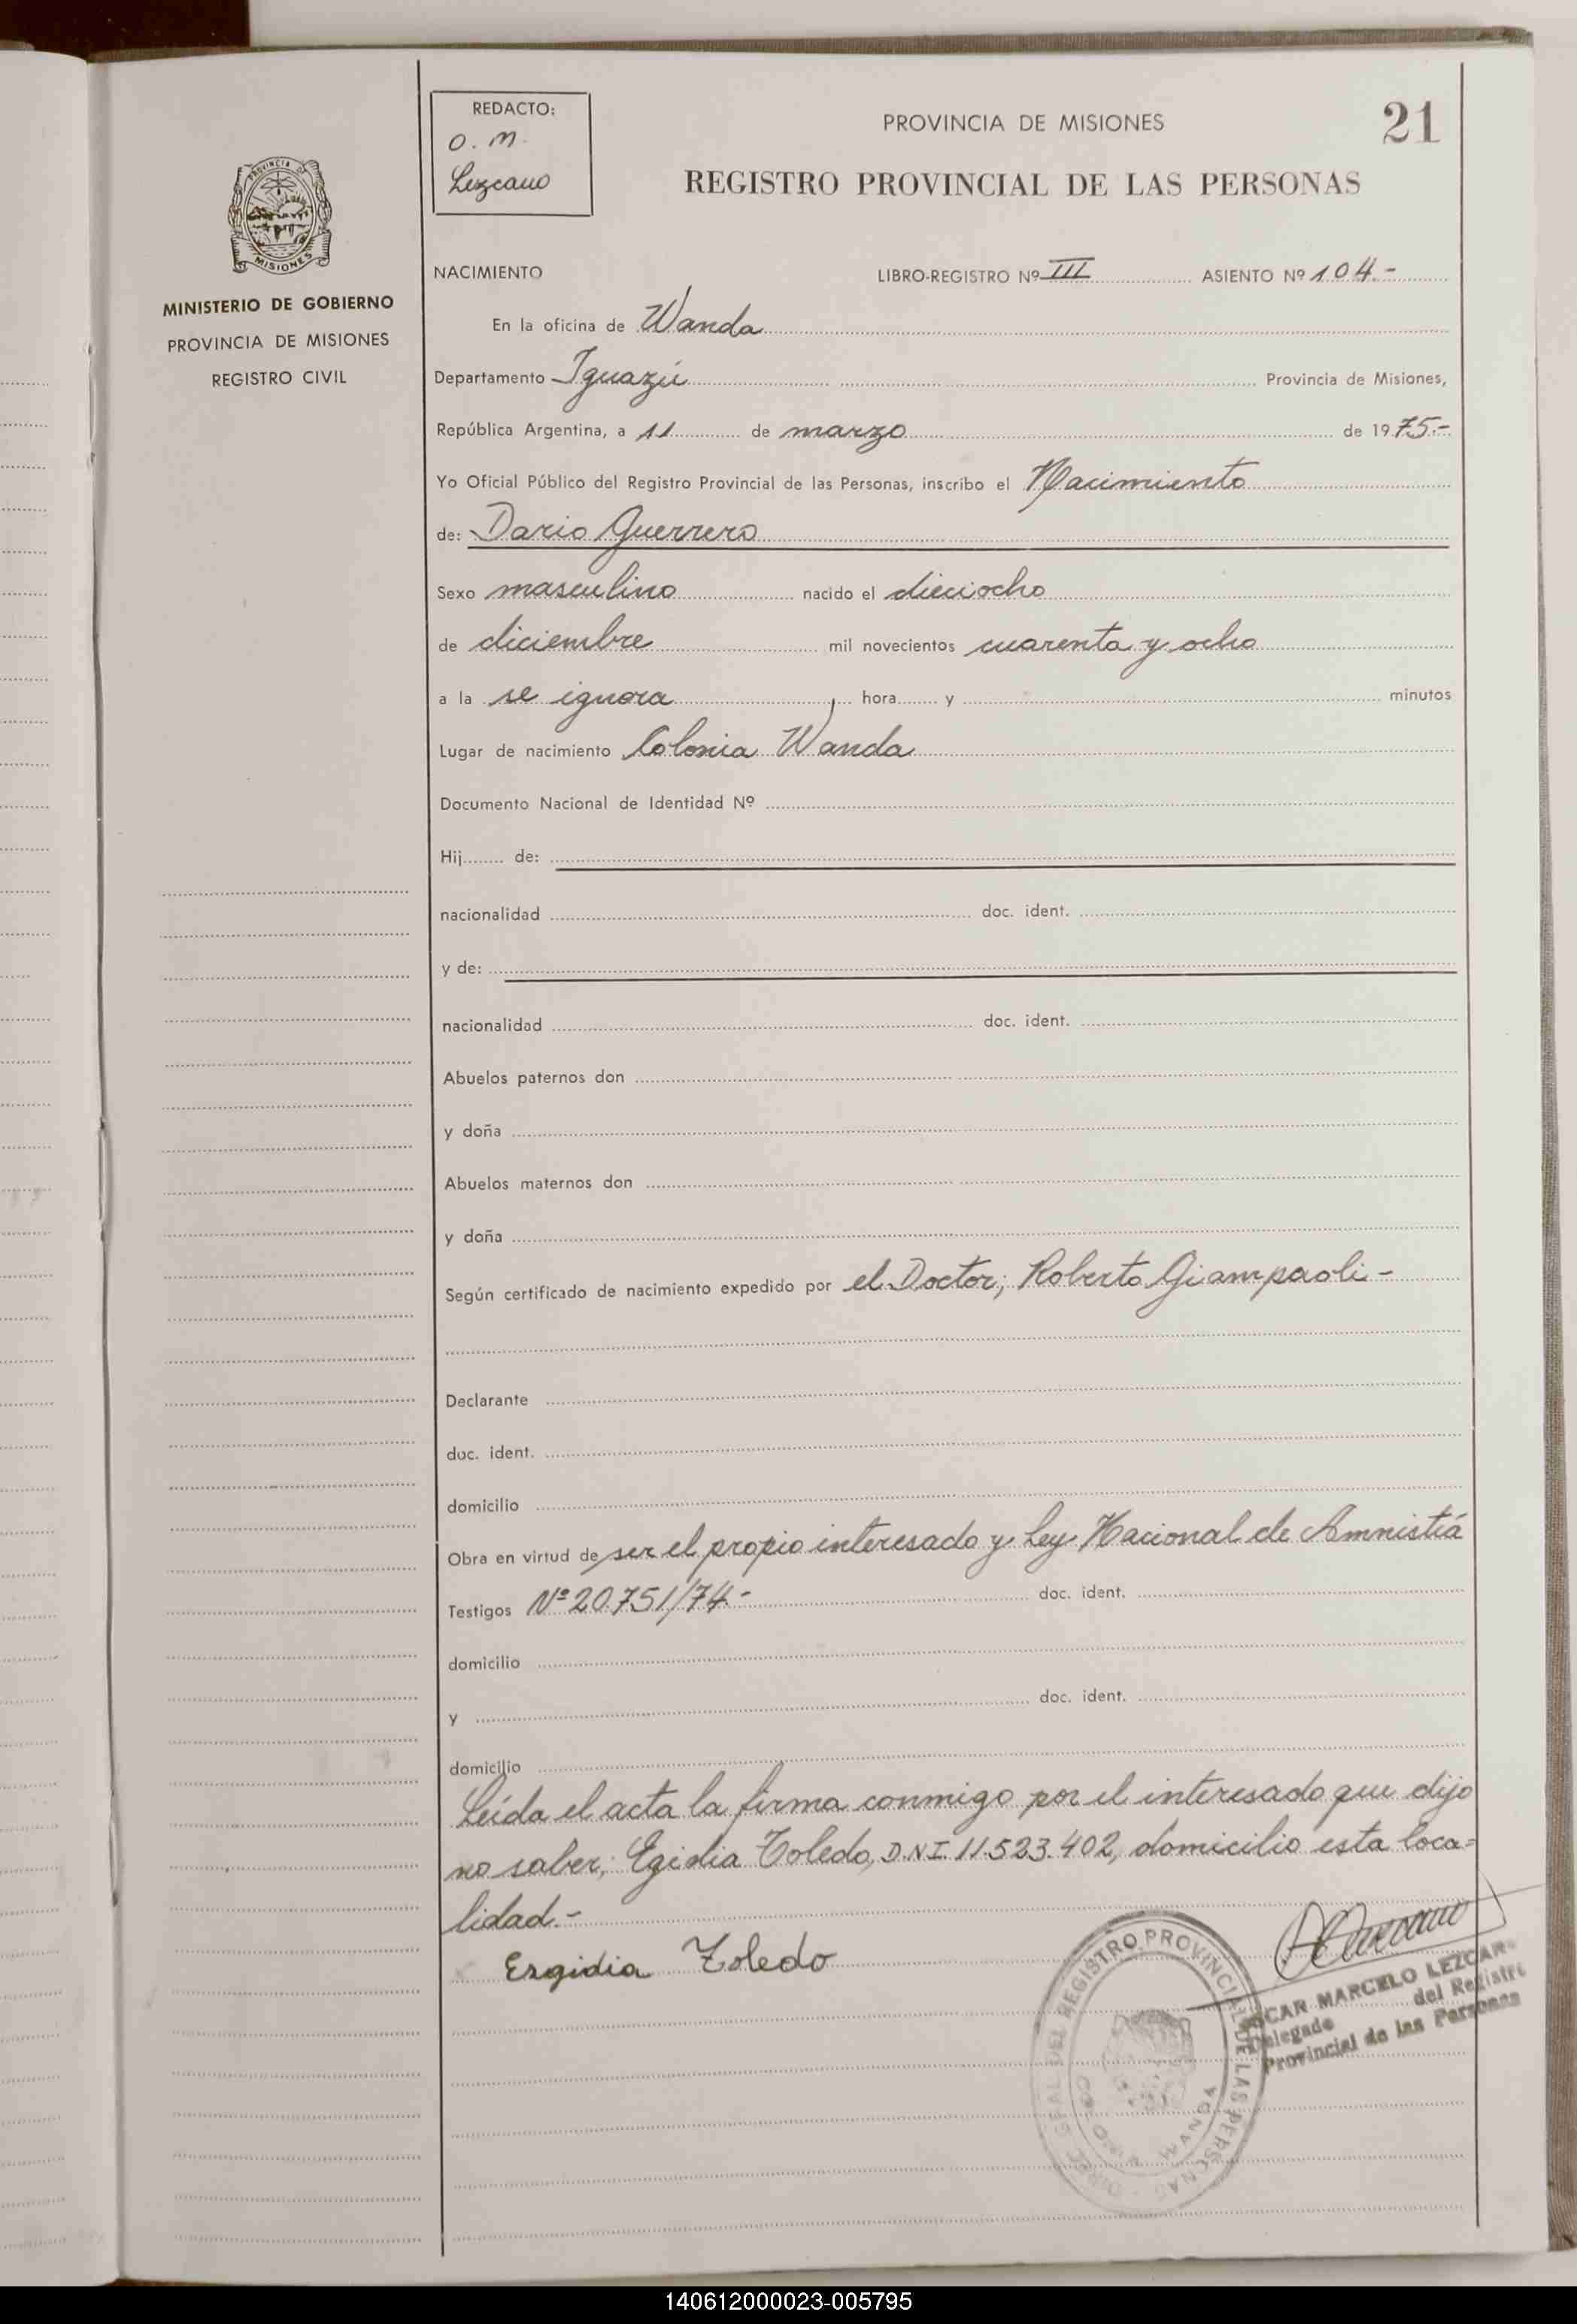 REDACTO:
O. M.
Lezcano
PROVINCIA DE MISIONES
21
REGISTRO PROVINCIAL DE LAS PERSONAS
PROVINCIA DE MISIONES
MINISTERIO DE GOBIERNO
PROVINCIA DE MISIONES
REGISTRO CIVIL
NACIMIENTO LIBRO-REGISTRO Nº III ASIENTO Nº 104.-
En la oficina de Wanda
Departamento Iguazú Provincia de Misiones,
República Argentina, a 11 de marzo de 1975.-
Yo Oficial Público del Registro Provincial de las Personas, inscribo el Nacimiento
de: Dario Guerrero
Sexo masculino nacido el dieciocho
de diciembre mil novecientos cuarenta y ocho
a la se ignora, hora y minutos
Lugar de nacimiento Colonia Wanda
Documento Nacional de Identidad Nº
Hij de:
nacionalidad doc. ident.
y de:
nacionalidad doc. ident.
Abuelos paternos don
y doña
Abuelos maternos don
y doña
Según certificado de nacimiento expedido por el Doctor; Roberto Giampaoli -
Declarante
doc. ident.
domicilio
Obra en virtud de ser el propio interesado y Ley Nacional de Amnistiá
Testigos Nº 20.751/74.- doc. ident.
domicilio
y doc. ident.
domicilio
Leída el acta la firma conmigo por el interesado que dijo
no saber; Egidia Toledo, D.N.I. 11.523.402, domicilio esta loca=
lidad.-
Ergidia Toledo
OSCAR MARCELO LEZCANO
Delegado del Registro
Provincial de las Personas
DIREC. GRAL. DEL REGISTRO PROVINCIAL DE LAS PERSONAS
WANDA
140612000023-005795